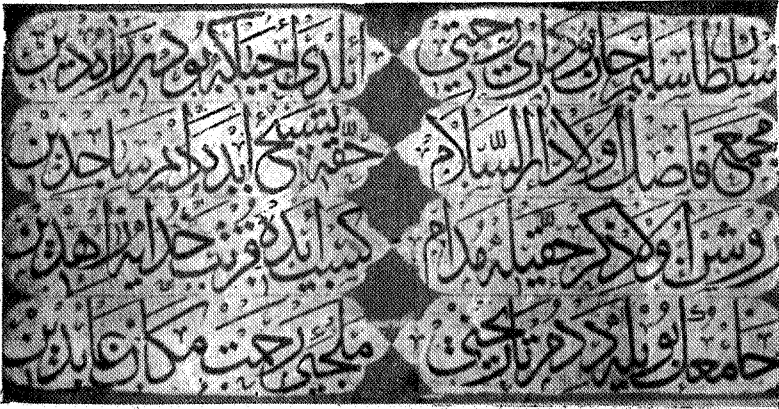 سلطان سليم خان ايلدى احيا كه بودر
مجمع فاضل اولا دار السلام حقه تسبيح ايده دائم ساجدين
روشن اولا ذكر حقيله مدام كسب ايده قربت خدايه زاهدين
جامعك بويله ديدم تاريخنى ملجئى رحمت مكان عابدين